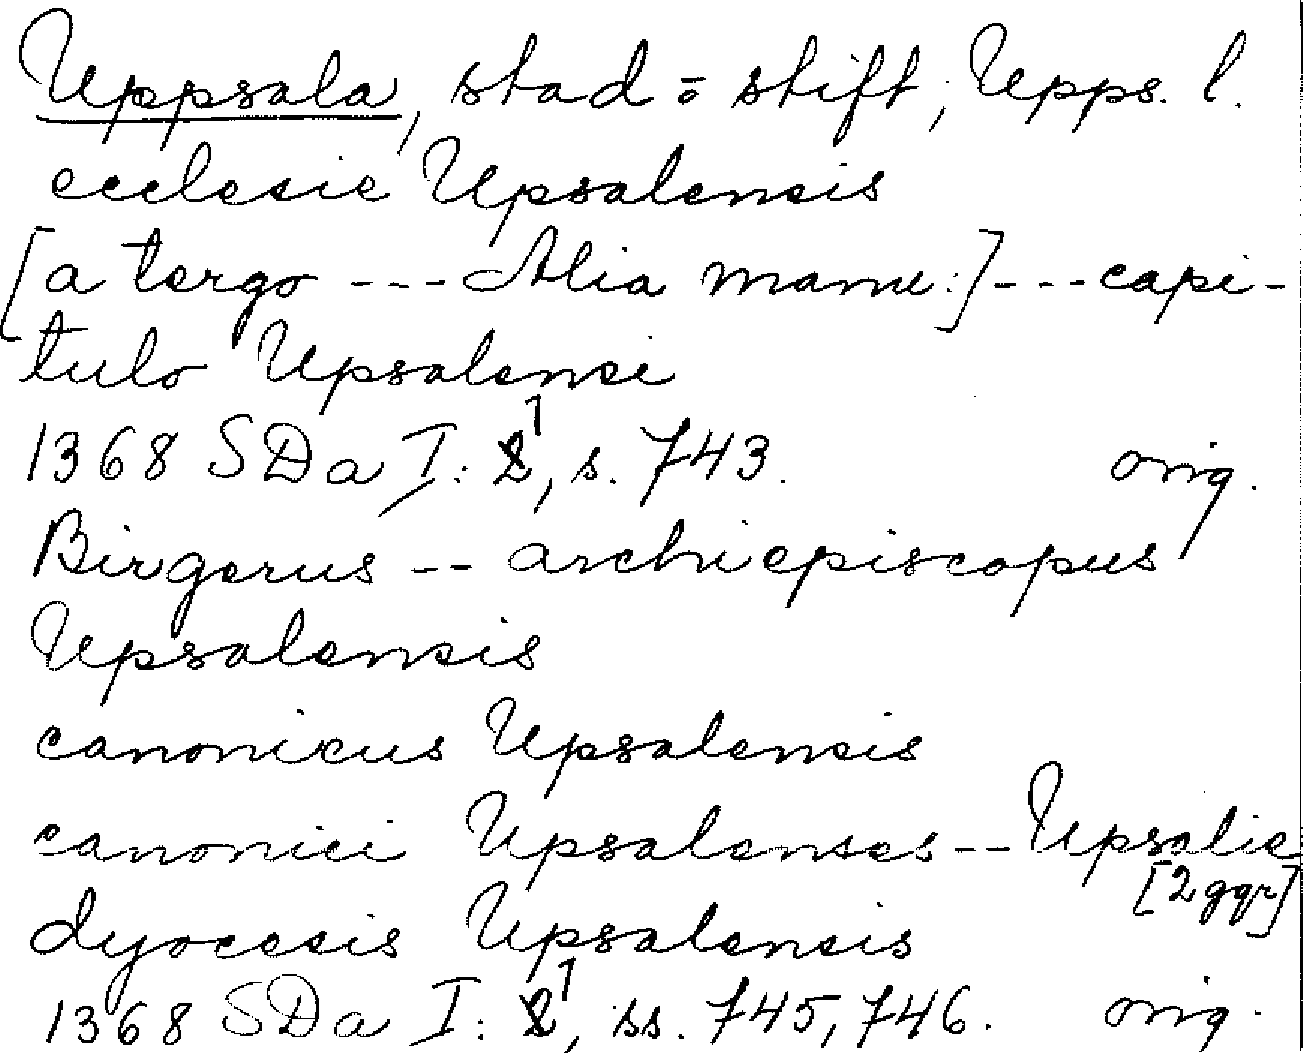 Uppsala, stad o stift, Upps. l.
ecclesie Upsalensis
[a tergo --- Alia manu:] --- capi-
tulo Upsalensi
1368 SDa I: 1, s. 743. orig.
Birgerus -- archiepiscopus
Upsalensis
canonicus Upsalensis
canonici Upsalenses -- Upsalie
[2 ggr]
dyocesis Upsalensis
1368 SDa I: 1, ss. 745, 746. orig.